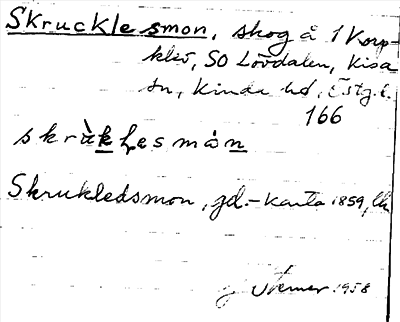 Skruckle smon, skog å 1 Korp-
klev, SO Lövdalen, Kisa
sn, Kinda hd, Östg. l.
166
skrùkḷesmån
Skrukledsmon, gd.-karta 1859,
1958